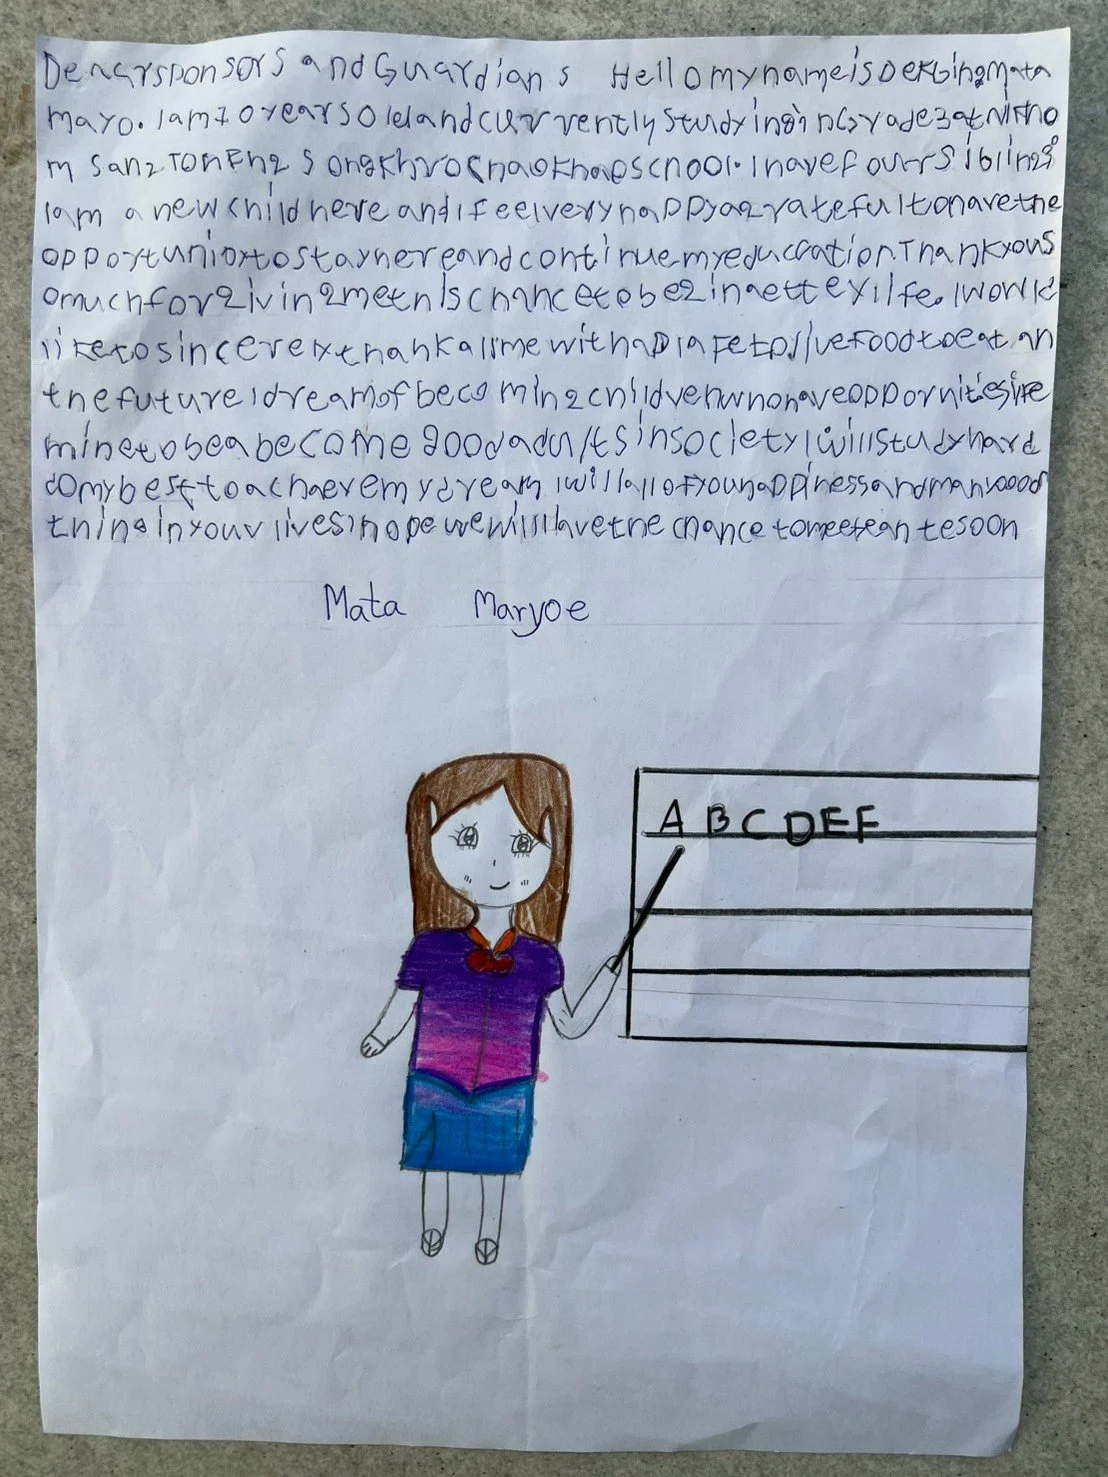 Dearsponsors and Guardians Hellomynameis Mata
mayo. Iam10yearsoldandcurrventlystudyinginGrade3at
school. Ihavefourrsiblings
Iam a newchildhereandifeelveryhappyagratefultohavethe
opportunioytostayhereandcontinuemyeducrationThankyous
omuchforgivingmethischancetobeginaettexlife. Iwould
liketosincerelxthankallmewithaplafetoliveFoodtoeat. an
thefutureidreamofbecomingchildvenwhohaveoppornities
minetobeabecomegoodadultsinsocietyIwillstudyhard
domybesttoachaevemydream Iwillallofyouhappinessand
thinginyouvliveshopewewillhavethe chance tomeet soon
Mata Maryoe
A B C D E F